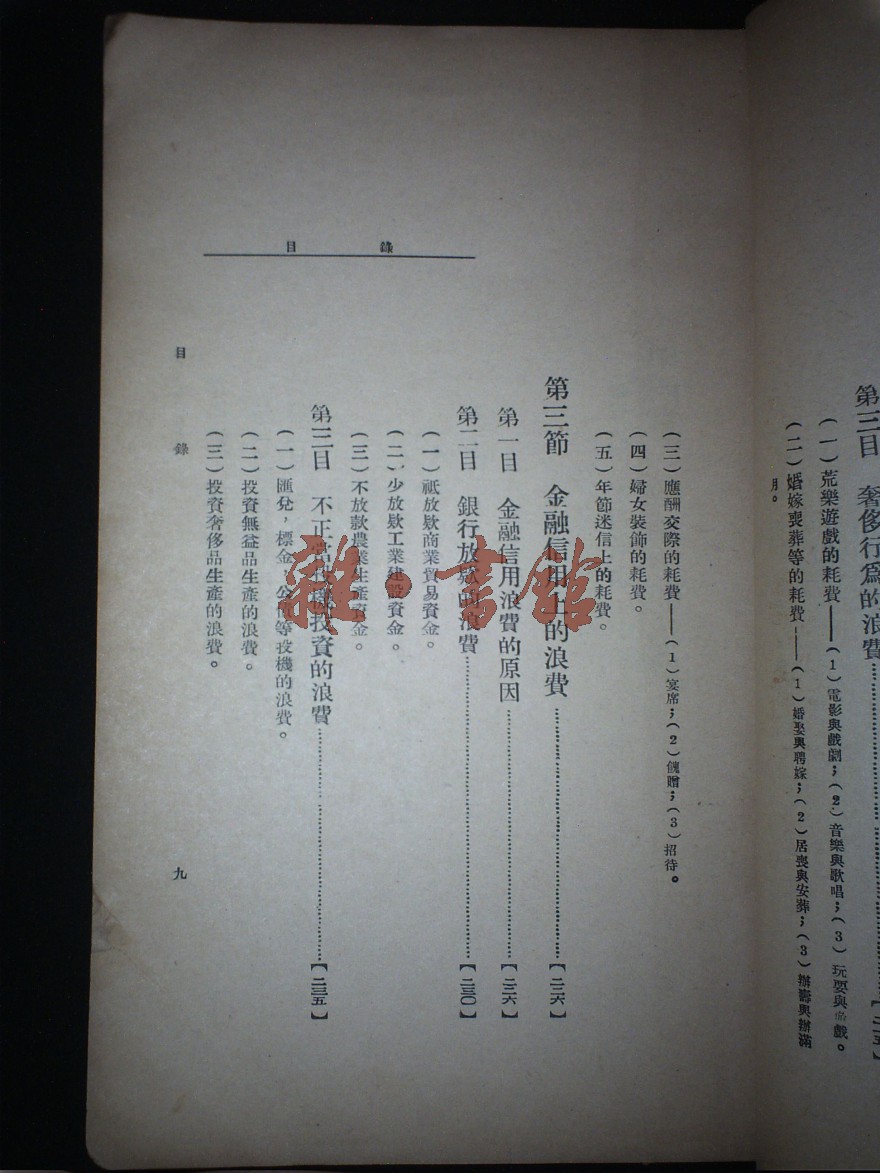 第三目　奢侈行爲的浪費
（一）荒樂遊戲的耗費——（1）電影與戲劇；（2）音樂與歌唱；（3）玩耍與 戲。
（二）婚嫁喪葬等的耗費——（1）婚娶與聘嫁；（2）居喪與安葬；（3）辦壽與辦滿
月。
目　錄
（三）應酬交際的耗費——（1）宴席；（2）餽贈；（3）招待。
（四）婦女裝飾的耗費。
（五）年節迷信上的耗費。
第三節　金融信用上的浪費……【二二六】
第一目　金融信用浪費的原因……【二二六】
第二目　銀行放款的浪費……【二三〇】
（一）祇放欵商業貿易資金。
（二）少放欵工業建設資金。
（三）不放欵農業生產資金。
第三目　不正當投機投資的浪費……【二三五】
（一）匯兌，標金，公債等投機的浪費。
（二）投資無益品生產的浪費。
（三）投資奢侈品生產的浪費。
目　錄
九
雜·書館